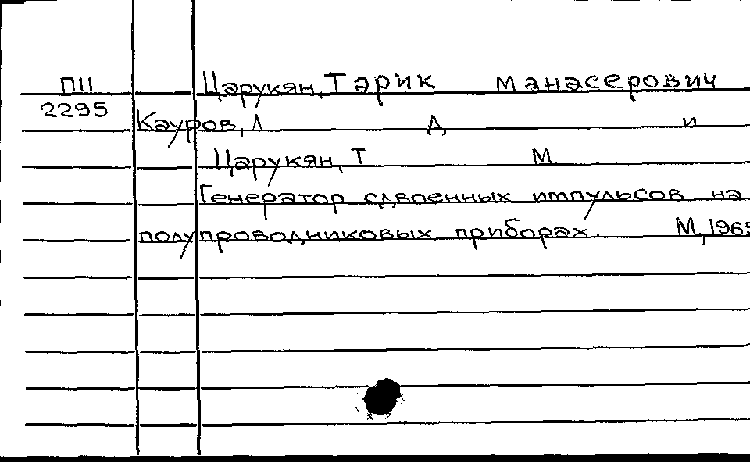 П11 Царукян, Тарик Манасерович
2295
Кауров, Л А и
Царукян, Т М
Генератор сдвоенных импульсов на
полупроводниковых приборах. М, 1965